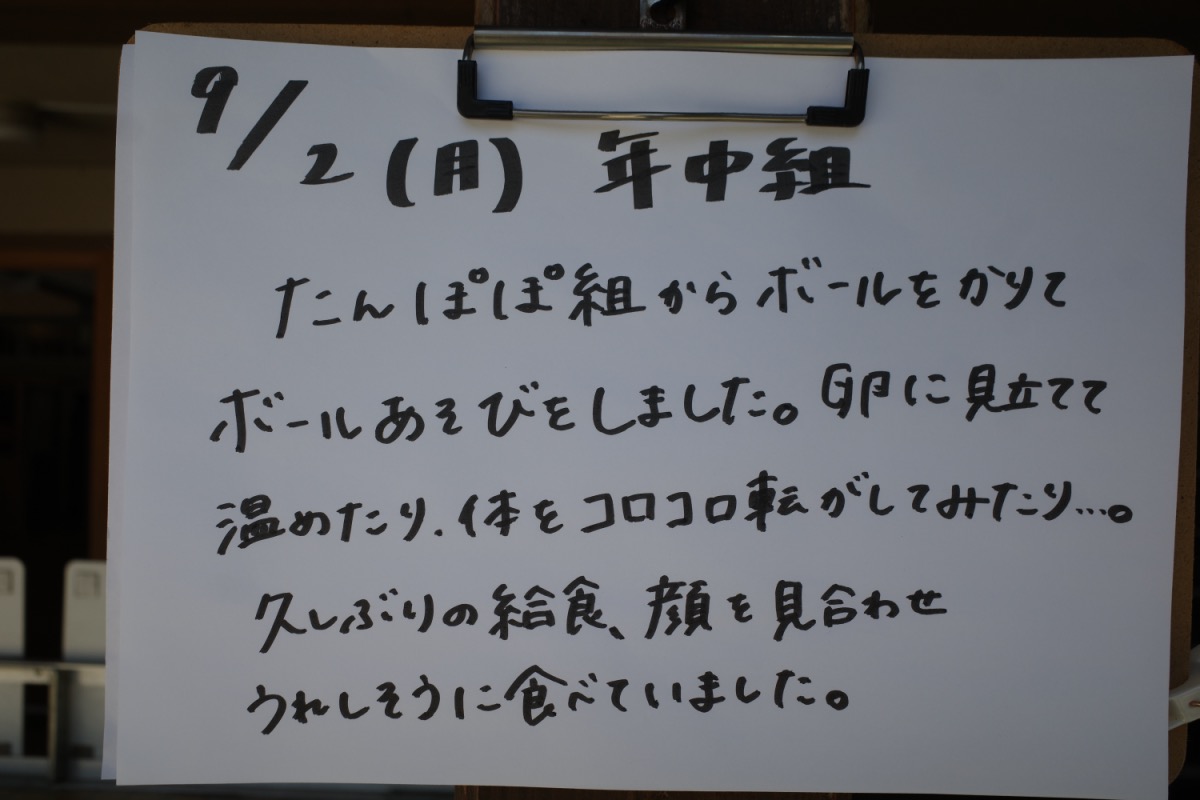 9/2(月) 年中組
たんぽぽ組からボールをかりて
ボールあそびをしました。卵に見立てて
温めたり、体をコロコロ転がしてみたり…。
久しぶりの給食、顔を見合わせ
うれしそうに食べていました。